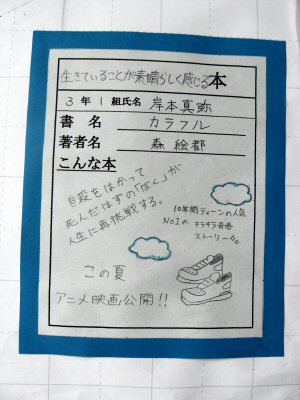 生きていることが素晴らしく感じる本
3年1組氏名 岸本真弥
書名 カラフル
著者名 森 絵都
こんな本
自殺をはかって
死んだはずの「ぼく」が
人生に再挑戦する。
10年間ティーンの人気
No1の キラキラ青春
ストーリー
この夏
アニメ映画公開!!